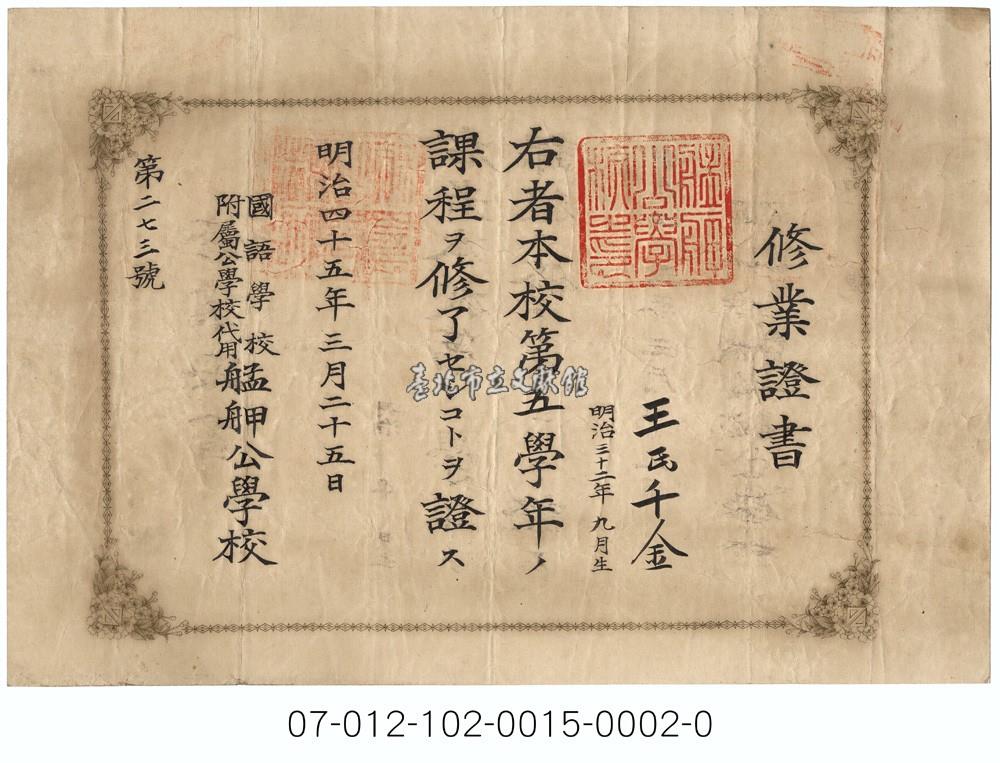 修業證書
王氏千金
明治三十二年九月生
右者本校第五學年ノ
課程ヲ修了セシコトヲ證ス
明治四十五年三月二十五日
國語學校
附屬公學校代用
艋舺公學校
第二七三號
艋舺公學校印
臺北市立文獻館
07-012-102-0015-0002-0